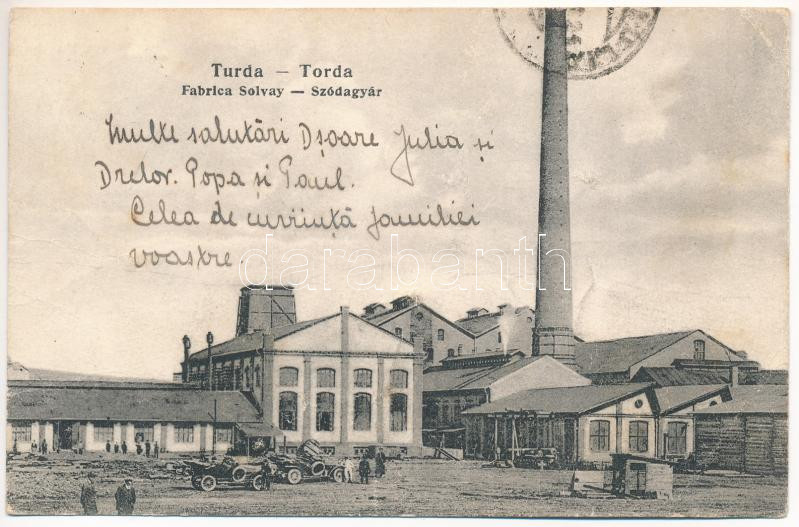 Turda — Torda
Fabrica Solvay — Szódagyár
Multe salutări Dșoare Julia și
Drelor. Popa și Paul.
Celea de cuviință familiei
voastre.
darabanth